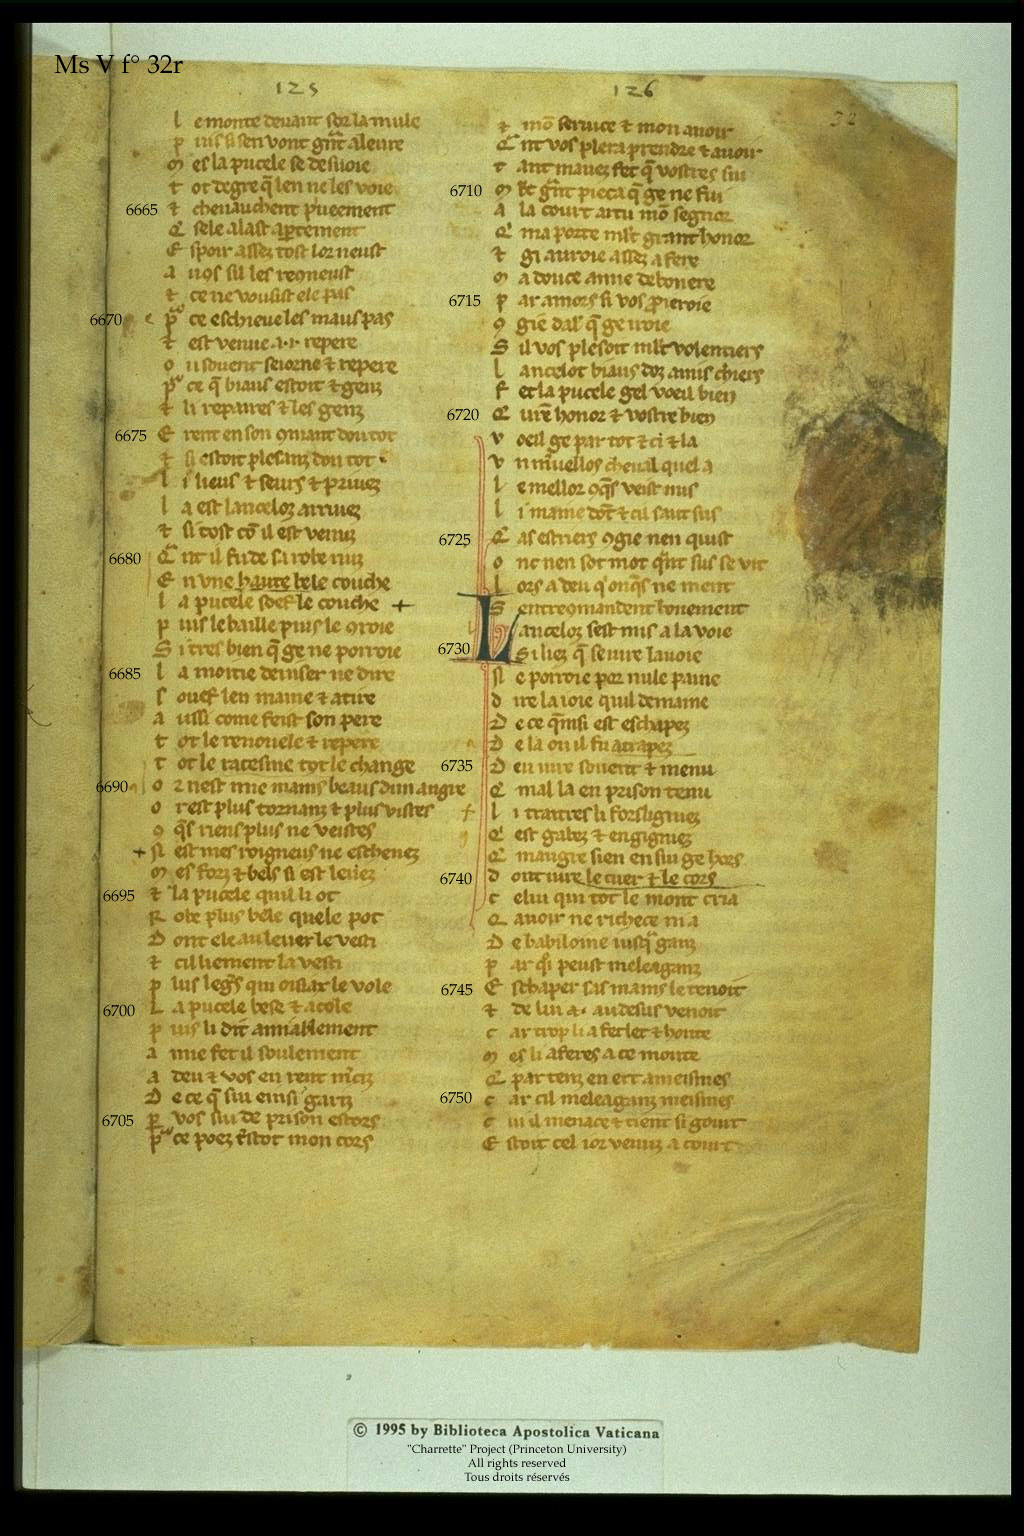 Ms V f° 32r
125
l e monte devant sor la mule
p uis si sen vont grant aleure
m es la pucele se desvoie
t ot de gre q̄ len ne les voie
6665 ⁊ chevauchent priveement
Q̄ sele alast apertement
E spoir assez tost lor neust
a nos sil les reconeust
⁊ ce ne vousist ele pas
6670 p̄ ce eschieve les maus pas
⁊ est venue a .i. repere
o u sovent seiorne ⁊ repere
p̄ ce q̄ biaus estoit ⁊ genz
⁊ li repaires ⁊ les genz
6675 E rent en son 9mant dou tot
⁊ si estoit plesanz dou tot
l i lieus ⁊ seurs ⁊ privez
l a est lanceloz arrivez
⁊ si tost cō il est venuz
6680 Q̄nt il fu de sa robe nuz
E n une haute bele couche
l a pucele soef le couche +
p uis le baille puis le 9roie
S i tres bien q̄ ge ne porroie
6685 l a moitie deviser ne dire
s ouef len maine ⁊ atire
a ussi come feist son pere
t ot le renovele ⁊ repere
t ot le racesme tot le change
6690 o r nest mie mains beaus dun angre
o r est plus tornanz ⁊ plus vistes
9 q̄s riens plus ne veistes
+ N est mes roigneus ne eschevez
m es forz ⁊ bels si est levez
6695 ⁊ la pucele quil li ot
R obe plus bele quele pot
D ont ele au lever le vesti
⁊ cil liement la vesti
p lus legrs qui oisiax le vole
6700 L a pucele bese ⁊ acole
p uis li dit amiablement
a mie fet il soulement
a deu ⁊ vos en rent m̄ciz
D e ce q̄ sui einsi gariz
6705 p̄ vos sui de prison estors
p̄ ce poez tstot mon cors
126
32
⁊ mō service ⁊ mon avoir
Q̄ nt vos plera prendre ⁊ avoir
t ant mavez fet q̄ vostres sui
6710 m lt gr̄nt pieca q̄ ge ne fui
A la court artu mō segnor
Q̄ ma porte mlt grant honor
⁊ gi avroie assez a fere
m a douce amie debonere
6715 p ar amors si vos proieroie
9 gie dal̄ q̄ ge iroie
S il vos plesoit mlt volentiers
l ancelot biaus doz amis chiers
F et la pucele gel voeil bien
6720 Q̄ vrē honor ⁊ vostre bien
v oeil ge par tot ⁊ ci ⁊ la
v n m̄vellos cheval quel a
l e mellor 9q̄s veist nus
l i maine dōt ⁊ cil saut sus
6725 Q̄ as estriers 9gie nen quist
o nc nen sot mot q̄nt sus se vit
l ors a deu q̄ onq̄s ne ment
S entre9mandent bonement
L anceloz sest mis a la voie
6730 S i liez q̄ se iure lavoie
N e porroie por nule paine
d ire la ioie quil demaine
D e ce q̄insi est eschapez
D e la ou il fu atrapez
6735 D eu iure sovent ⁊ menu
Q̄ mal la en prison tenu
l i traitres li forsligniez
Q̄ est gabez ⁊ engigniez
Q̄ maugre sien en sui ge hors
6740 d ont iure le cuer ⁊ le cors
c elui qui tot le mont cria
Q̄ avoir ne richece ni a
D e babiloine iusq̄ ganz
p ar q̄i peust meleaganz
6745 E schaper sas mains le tenoit
⁊ de lui a. au desus venoit
c ar trop li a fet let ⁊ honte
m es li aferes a ce monte
Q̄ par tenz en ert ameismes
6750 c ar cil meleaganz meismes
c ui il menace ⁊ tient si gourt
E stoit cel ior venuz a court
© 1995 by Biblioteca Apostolica Vaticana
"Charrette" Project (Princeton University)
All rights reserved
Tous droits réservés